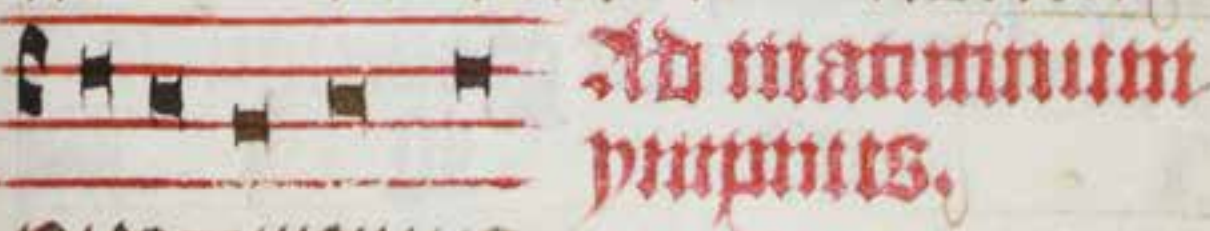 Ad matutinum
ympnus.